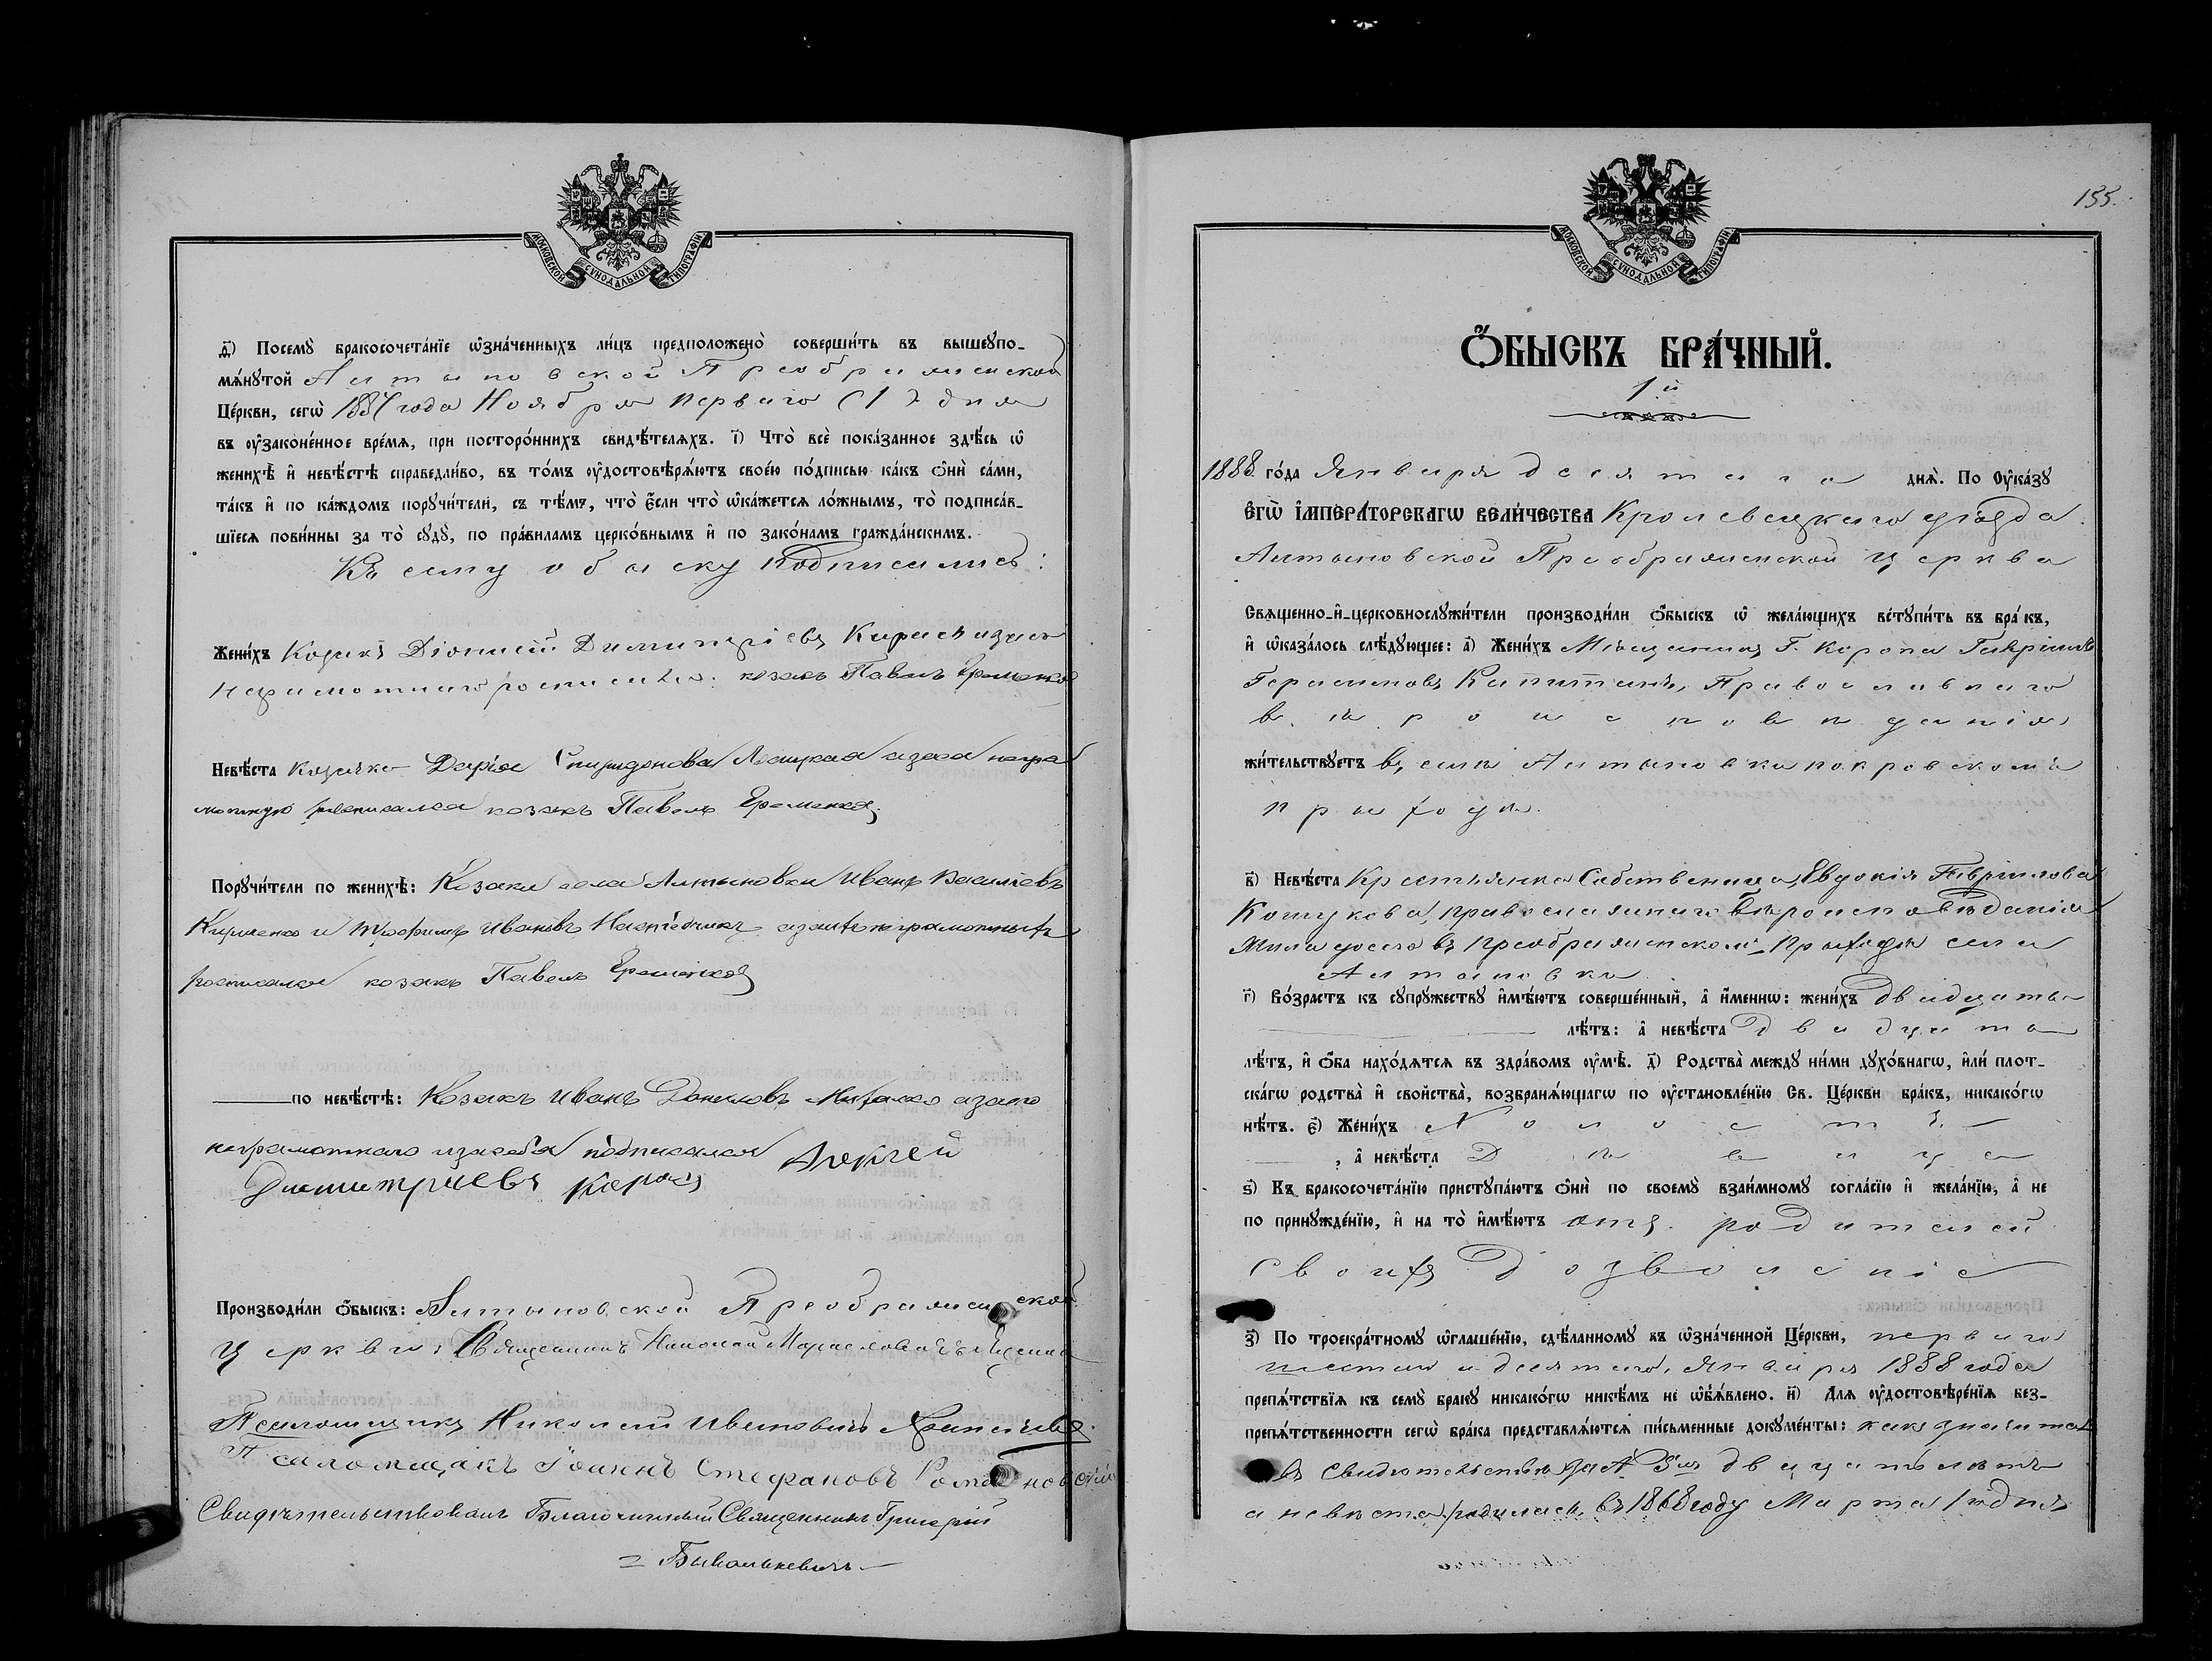 МОСКОВСКОЙ СѴНОДАЛЬНОЙ ТИПОГРАФІИ
ѳ҃) Посемꙋ бракосочета́нїе ѡ҆зна́ченныхъ ли́цъ предположено̀ соверши́ть въ вышеꙋпо-
мѧ́нꙋтой Алтыновской Преображенской
Це́ркви, сегѡ̀ 1887 года Ноября перваго (1) дня
въ ᲂу҆зако́ненное вре́мѧ, при посторо́ннихъ свидѣ́телѧхъ. і҃) Что̀ всѐ пока́занное здѣ́сь ѡ҆
женихѣ̀ и҆ невѣ́стѣ справедли́во, въ то́мъ ᲂу҆достовѣрѧ́ютъ свое́ю по́дписью ка́къ ѻ҆нѝ са́ми,
та́къ и҆ по ка́ждомъ порꙋчи́тели, съ тѣ́мъ, что̀ є҆́сли что̀ ѡ҆ка́жетсѧ ло́жнымъ, то̀ подписа́в-
шїесѧ пови́нны за то̀ сꙋдꙋ̀, по пра́виламъ церко́внымъ и҆ по зако́намъ гражда́нскимъ.
Къ сему обыску подписались:
Жени́хъ Козакъ Діонисій Димитріевъ
неграмотнаго росписался: козакъ Павелъ Еременко
Невѣ́ста козачка Дарія Спиридонова а за неё негра
мотную росписался козакъ Павелъ Еременко
Порꙋчи́тели по женихѣ̀: Козаки села Алтыновки Иванъ Васильевъ
и Трофимъ Ивановъ неграмотныхъ
росписался козакъ Павелъ Еременко
по невѣ́стѣ: Козакъ Иванъ Даниловъ а за его
неграмотнаго и за себя подписался Алексей
Димитриевъ
Производи́ли ѻ҆́быскъ: Алтыновской Преображенской
церкви: Священникъ Николай
Псаломщикъ Николай Ивановичъ
Псаломщикъ Іоаннъ Стефановъ Романовскій
Свидѣтельствовалъ Благочинный Священникъ Григорій
155.
МОСКОВСКОЙ СѴНОДАЛЬНОЙ ТИПОГРАФІИ
Ѻ҆́БЫСКЪ БРА́ЧНЫЙ.
1й
1888 го́да Января десятаго днѧ̀. По ᲂу҆ка́зꙋ
Є҆ГѠ̀ І҆МПЕРА́ТОРСКАГѠ ВЕЛИ́ЧЕСТВА Кролевецкаго уѣзда
Алтыновской Преображенской церкви
Свѧщенно-и҆-церковнослꙋжи́тели производи́ли ѻ҆́быскъ ѡ҆ жела́ющихъ встꙋпи́ть въ бра́къ,
и҆ ѡ҆каза́лось слѣ́дꙋющее: а҃) Жени́хъ Мѣщанинъ Г. Коропа Гавріилъ
Герасимовъ Капитанъ, Православнаго
вѣроисповѣданія
жи́тельствꙋетъ въ селѣ Алтыновкѣ покровскомъ
приходѣ.
в҃) Невѣ́ста Крестьянка Собственница, Евдокія Гавріилова
Кошукова, православнаго вѣроисповѣданія
въ преображенскомъ приходѣ села
Алтыновки
г҃) Во́зрастъ къ сꙋпрꙋ́жествꙋ и҆мѣ́ютъ соверше́нный, а҆ и҆́меннѡ: жени́хъ двадцать
лѣ́тъ: а҆ невѣ́ста двадцать
лѣ́тъ, и҆ ѻ҆́ба нахо́дѧтсѧ въ здра́вомъ ᲂу҆мѣ̀. д҃) Родства̀ междꙋ ни́ми дꙋхо́внагѡ, и҆лѝ плот-
ска́гѡ родства̀ и҆ свойства̀, возбранѧ́ющагѡ по ᲂу҆становле́нїю Св. Це́ркви бра́къ, никако́гѡ
нѣ́тъ. є҃) Жени́хъ Холостъ
, а҆ невѣ́ста Дѣвица
ѕ҃) Къ бракосочета́нїю пристꙋпа́ютъ ѻ҆нѝ по своемꙋ̀ взаи́мномꙋ согла́сїю и҆ жела́нїю, а҆ не
по принꙋжде́нїю, и҆ на то̀ и҆мѣ́ютъ отъ родителей
своихъ дозволеніе
з҃) По троекра́тномꙋ ѡ҆глаше́нїю, сдѣ́ланномꙋ въ ѡ҆зна́ченной Це́ркви, перваго
шестаго и десятаго, Января 1888 года
препѧ́тствїѧ къ семꙋ̀ бракꙋ никако́гѡ никѣ́мъ не ѡ҆б̾ѧ́влено. и҃) Длѧ ᲂу҆достовѣре́нїѧ без-
препѧ́тственности сегѡ̀ бра́ка представлѧ́ютсѧ пи́сьменные докꙋме́нты: какъ значится
въ Свидѣтельствѣ за № двадцать лѣтъ
а невѣста родилась въ 1868 году Марта 1 дня